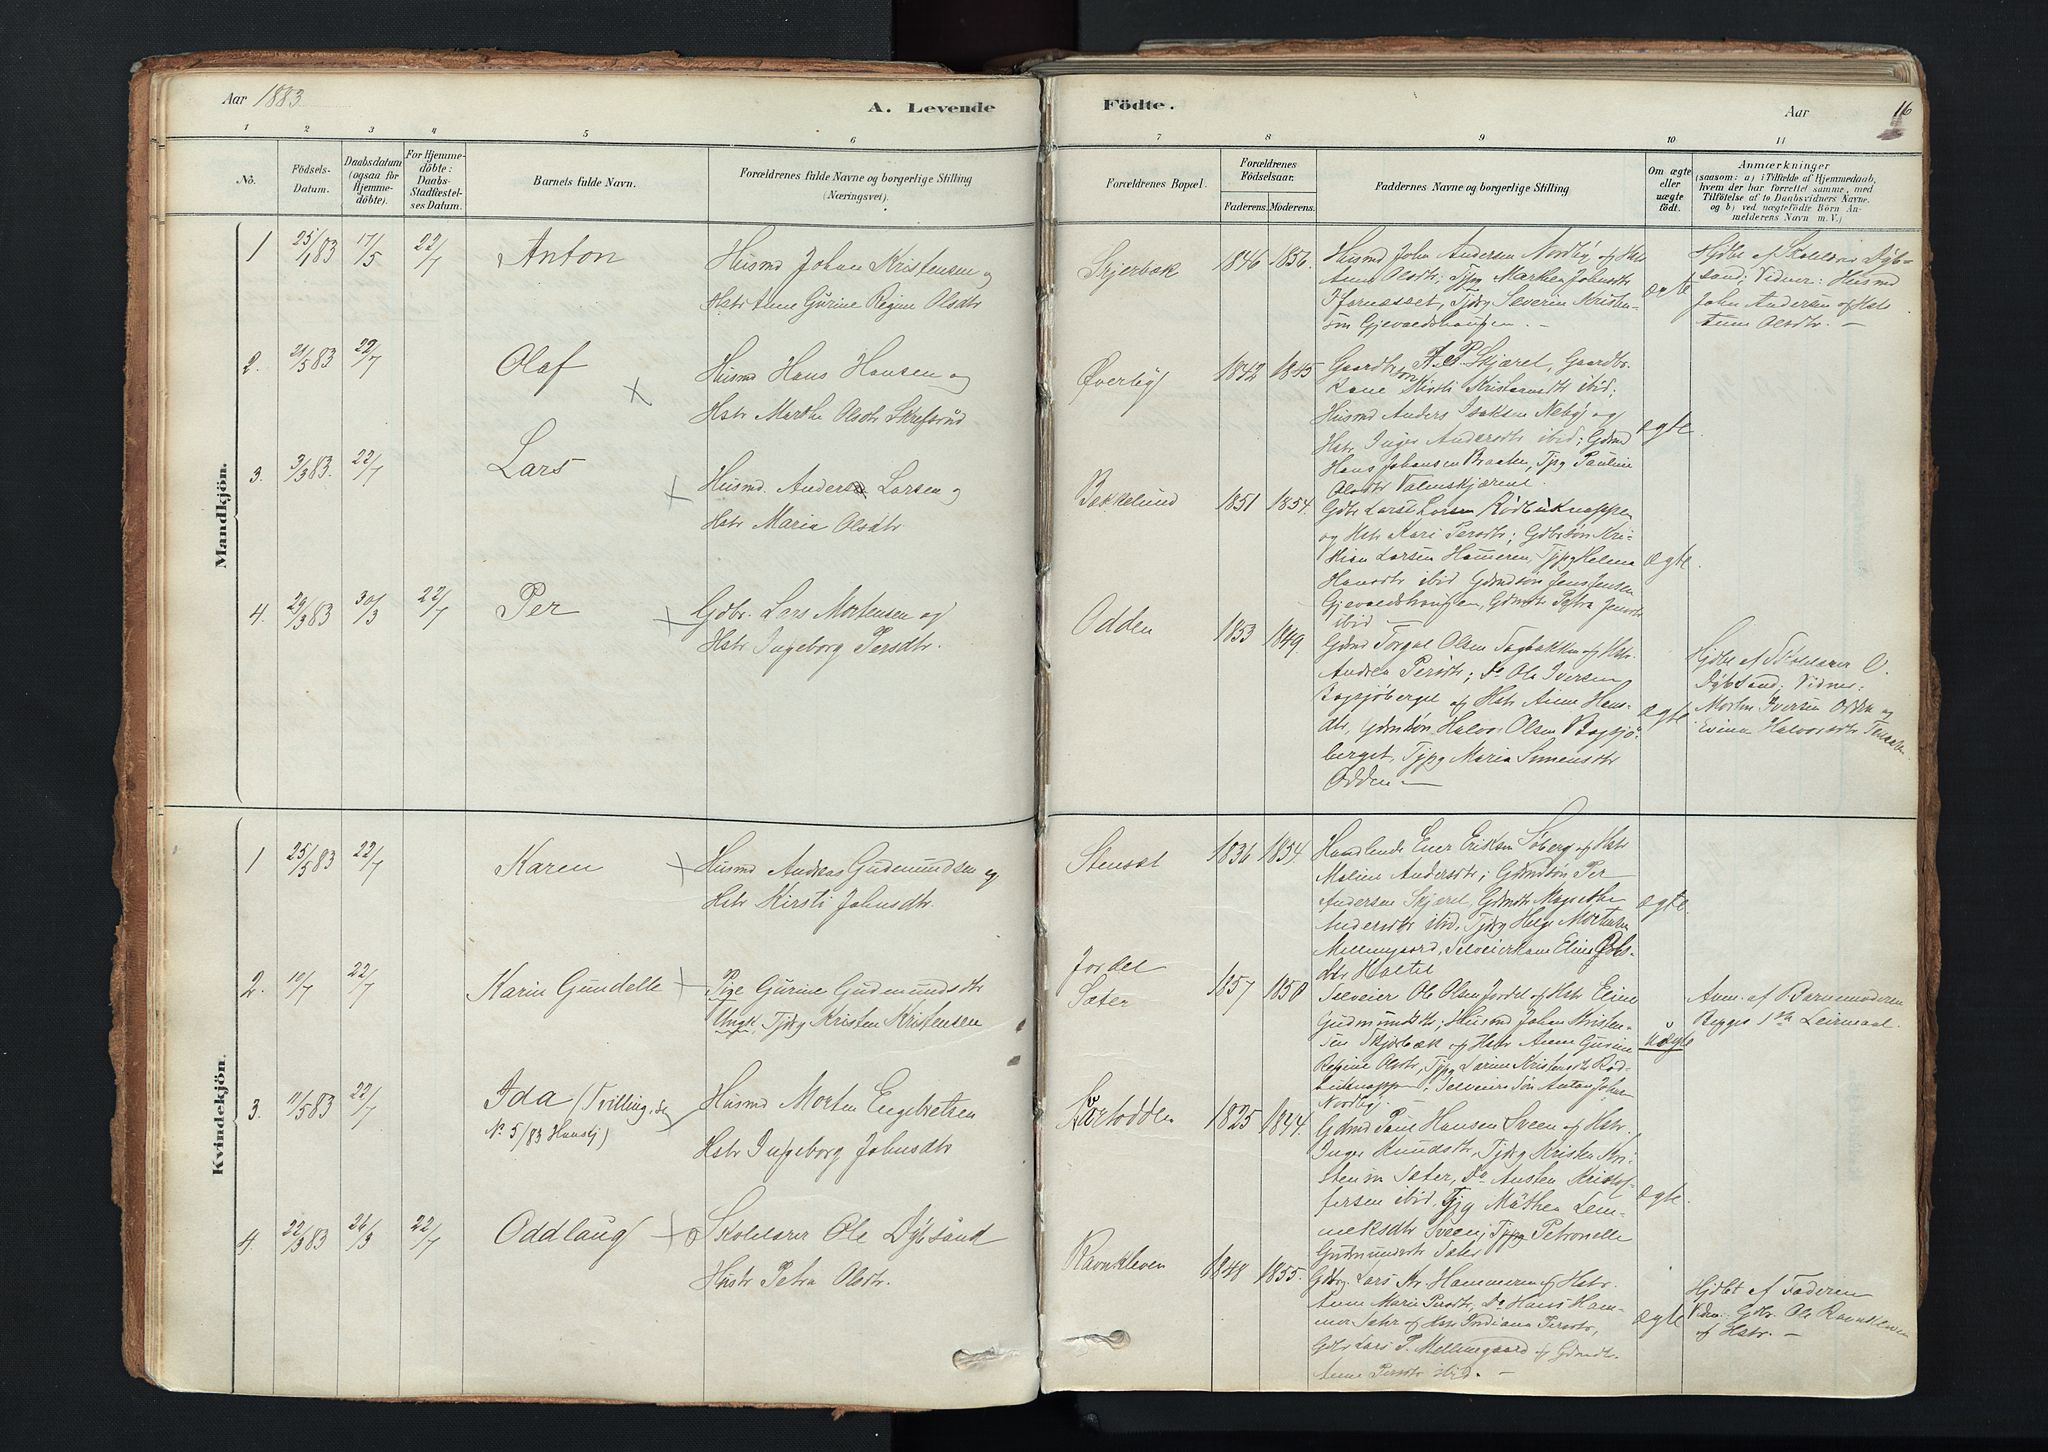 Aar 1883
A. Levende Födte.
Aar 16
1 2 3 4 5 6 7 8 9 10 11
No.
Födsels-Datum.
Daabsdatum (ogsaa for Hjemme-döbte).
For Hjemme-döbte: Daabs-Stadfæstel-ses Datum.
Barnets fulde Navn.
Forældrenes fulde Navne og borgerlige Stilling
(Næringsvei).
Forældrenes Bopæl.
Forældrenes Födselsaar.
Faderens. Moderens.
Faddernes Navne og borgerlige Stilling
Om ægte eller uægte födt.
Anmærkninger
(saasom: a) i Tilfælde af Hjemmedaab,
hvem der har forrettet samme, med
Tilföielse af to Daabsvidners Navne,
og b) ved uægtefödte Börn An-
melderens Navn m. V.)
Mandkjön.
1 25/1 83 17/5 22/7 Anton
Husmd Johan Kristensen og
Hstr Anne Gurine Regine Olsdtr
Skjerbæk 1846 1856.
Husmd John Andersen Nordby og Hstr
Anne Olsdtr; Tjpg Marken Johnsdtr
Tjdrg Severin Kristen-
sön Gjevaldshaugen. —
ægte
Hjdbt af Skolelærer Dyb-
sand; Vidner: Husmd
John Andersen og Hstr
Anne Olsdtr. —
2. 21/5 83 22/7 Olaf
Husmd Hans Hansen og
Hstr Marthe Olsdtr
Øverby 1842 1845
Gaardbr. Skjæret, Gaardbr.
Kone Kirsti ibid;
Husmd Anders Isaksen Neby og
Hstr Inger Andersdtr ibid; Gdmd
Hans Johansen Braaten, Tjpg Pauline
Olsdtr
ægte
3. 3/3 83. 22/7 Lars
Husmd. Anders Larsen og
Hstr Maria Olsdtr
Bækkelund 1851 1854.
Gdbr Lars Larsen Rödbuknappen
og Hstr Kari Persdtr; Gdbrsön Kri-
stian Larsen Hameren, Tjpg Helena
Hansdtr ibid Gdmdsön Jens Jensen
Gjevaldshaugen, Gdmdtr Petra Jensdtr
ibid —
ægte.
4. 29/3 83 30/3 22/7 Per
Gdbr. Lars Mortensen og
Hstr Ingeborg Persdtr.
Odden 1853 1849.
Gdmd Torgal Olsen Fagbakken og Hstr.
Andrea Persdtr; Do Ole Iversen
Bagsjöberget og Hstr Anne Hans-
dtr, Gdmdsön Halvor Olsen Bagsjö-
berget, Tjpg Maria Simensdtr
Odden —
ægte
Hjdbt af Skolelærer O.
Dybsand; Vidner:
Morten Iversen Odden og
Halvorsdtr
Kvindekjön.
1 25/5 83 22/7 Karen
Husmd Andreas Gudmundsen og
Hstr Kirsti Johnsdtr.
Stenset 1836 1854.
Handlende Ener Eriksen Söberg og Hstr
Maline Andersdtr; Gdmdsön Per
Andersen Skjæret, Gdmdtr Magnethe
Andersdtr ibid, Tjdrg Helge Mortensen
Mellemgaard, Selveierkone Eline
dtr
ægte.
2. 10/7 22/7 Karin Gundelle
Pige Gurine Gudmundsdtr
Ungk. Tjdrg Kristen Kristensen
Jordet
Sæter 1857 1850
Selveier Ole Olsen Jordet og Hstr Eline
Gudmundsdtr; Husmd Johan Kristen-
sen Skjærbæk og Hstr Anne Gurine
Regine Olsdtr, Tjpg Karine Kristensdtr Röd-
buknappen, Selveiersön Anton John-
Nordby.
uægte
Anm. af Barnemoderen
Begges 1ste Leiermaal.
3. 11/5 83 22/7 Ida (Tvilling, se
No 5/83 Hansej)
Husmd Morten Engebretsen
Hstr Ingeborg Johnsdtr
1825 1844.
Gdmd Paul Hansen Sveen og Hstr.
Inger Knudsdtr, Tjdrg Kristen Kri-
stensen Sæter, Do Austen Kristof-
fersen ibid, Tjpg Mathea Lem-
meksdtr Sveen, Tjpg Petronelle
Gudmundsdtr Sæter
ægte.
4. 22/3 83 26/3 22/7 Oddlaug
Skolelærer Ole Dybsand
Hustr Petra Olsdtr.
Ravnkleven 1848 1855.
Gdbr. Lars Kr Hammeren og Hstr.
Anne Marie Persdtr, Do Hans Ham-
mer Sæhr og Hstr Indiana Persdtr,
Gdbr Lars P. Mellemgaard og Gdmdtr.
Anne Persdtr ibid. —
ægte
Hjdbt af Faderen
Vidn. Gdbr Ole Ravnkleven
og Hstr. —